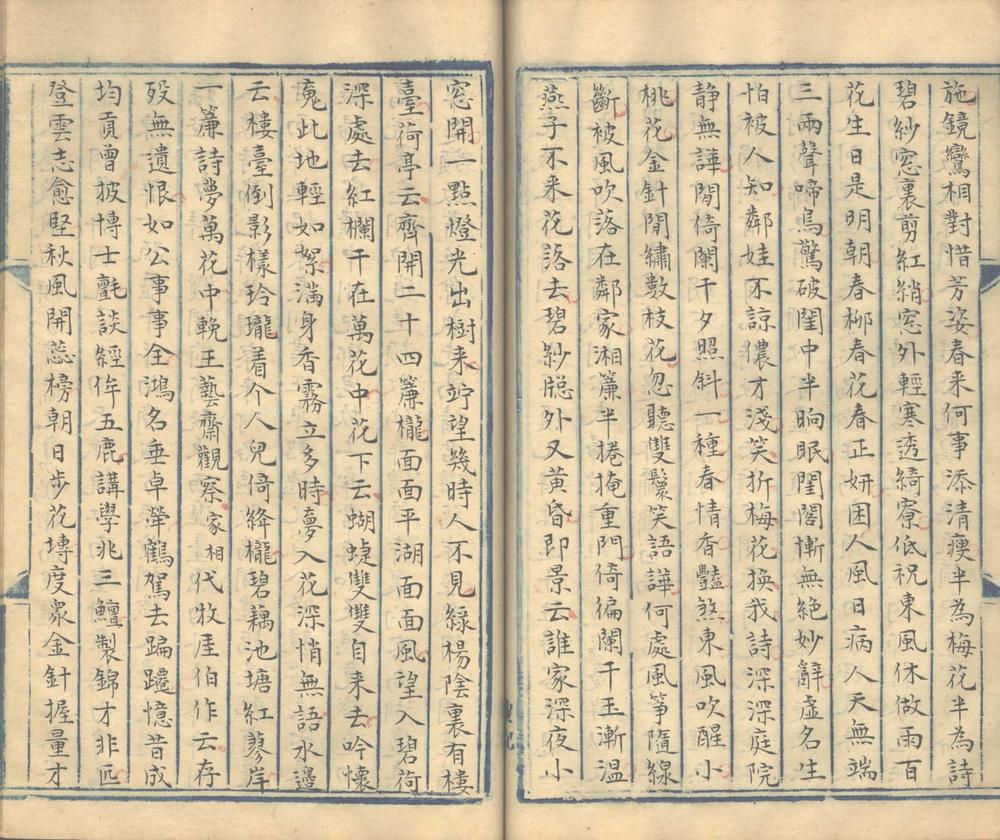 施鏡鸞相對惜芳姿春来何事添清瘦半為梅花半為詩
碧紗窓裏剪紅綃窓外輕寒透綺寮低祝東風休做雨百
花生日是明朝春柳春花春正妍困人風日病人天無端
三兩聲啼鳥驚破閨中半晌眠閨閣慚無絕妙辭虛名生
怕被人知鄰娃不諒儂才淺笑折梅花換我詩深深庭院
静無譁閒倚闌干夕照斜一種春情香豔煞東風吹醒小
桃花金針閒繡數枝花忽聽雙鬟笑語譁何處風箏隨線
斷被風吹落在鄰家湘簾半捲掩重門倚徧闌干玉漸温
燕子不来花落去碧紗牕外又黃昏即景云誰家深夜小
窓開一點燈光出樹来竚望幾時人不見緑楊陰裏有樓
臺荷亭云齊開二十四簾櫳面面平湖面面風望入碧荷
深處去紅欄干在萬花中花下云蝴蜨雙雙自来去吟懷
寬此地輕如絮滿身香霧立多時夣入花深悄無語水邊
云樓臺倒影樣玲瓏着个人兒倚絳櫳碧藕池塘紅蓼岸
一簾詩夢萬花中輓王藝齋觀察家相代牧厓伯作云存
殁無遺恨如公事事全鴻名垂卓犖鶴駕去蹁躚憶昔成
均貢曾披博士氈談經侔五鹿講學兆三鱣製錦才非匹
登雲志愈堅秋風開蕊榜朝日步花塼度衆金針握量才